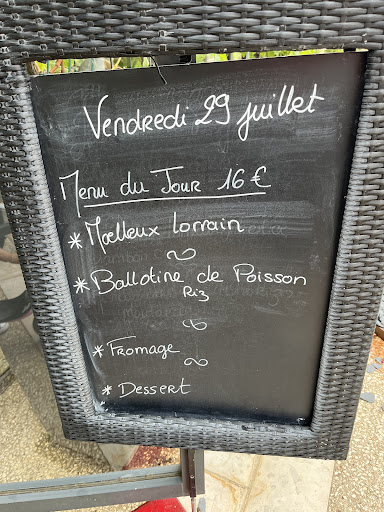 Vendredi 29 juillet
Menu du Jour 16 €
* Moelleux Lorrain
* Ballotine de Poisson
Riz
* Fromage
* Dessert